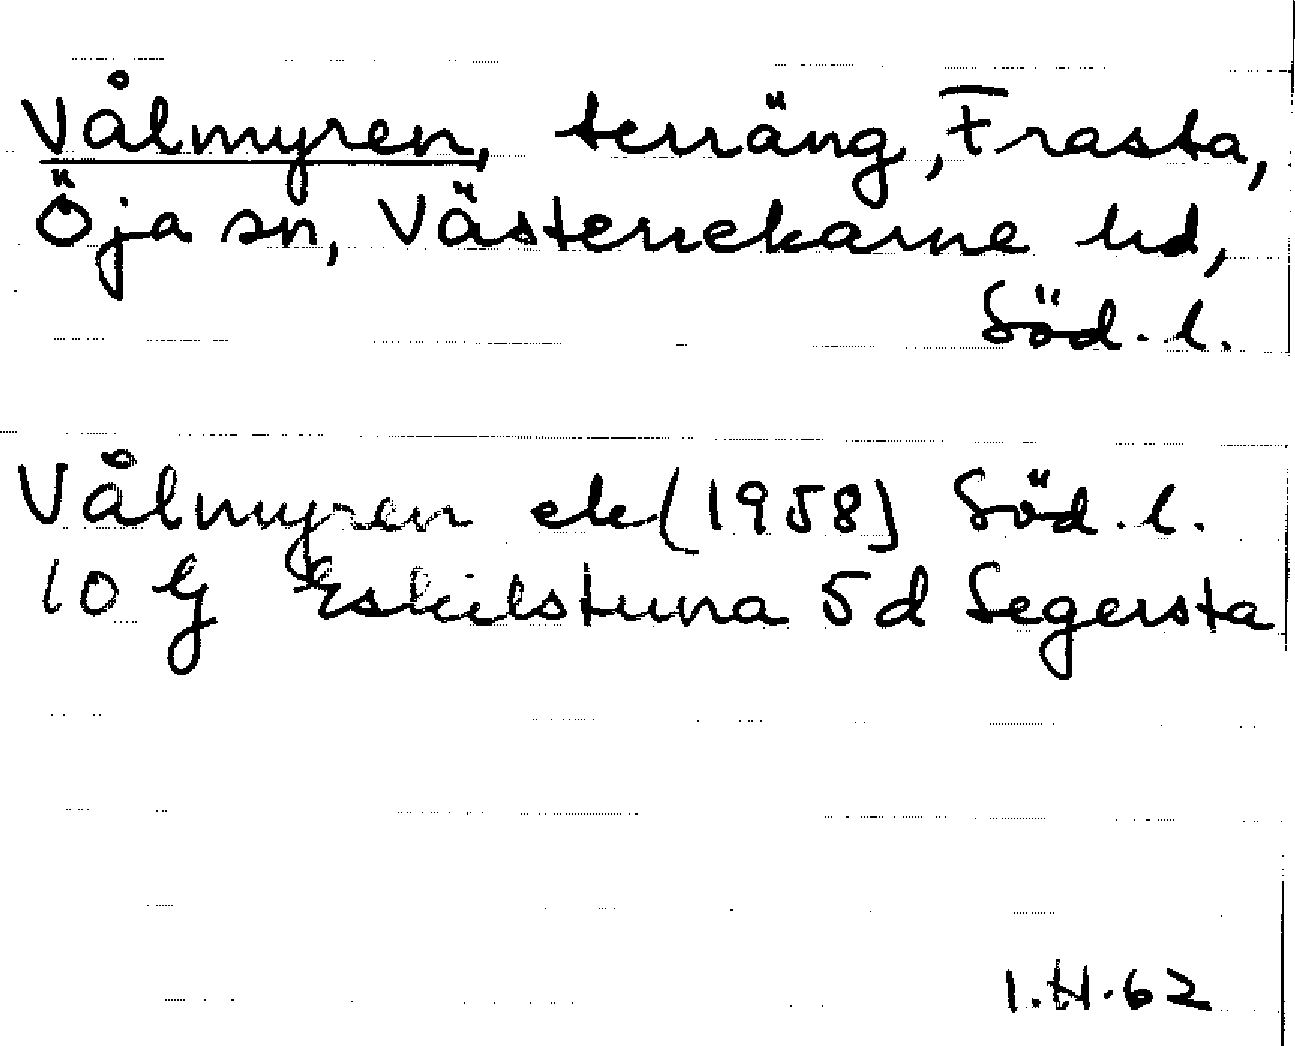 Vålmyren, terräng, Frasta,
Öja sn, Västerrekarne hd,
Söd. l.
Vålmyren ek (1958) Söd. l.
10 G Eskilstuna 5d Segersta
I.H.62